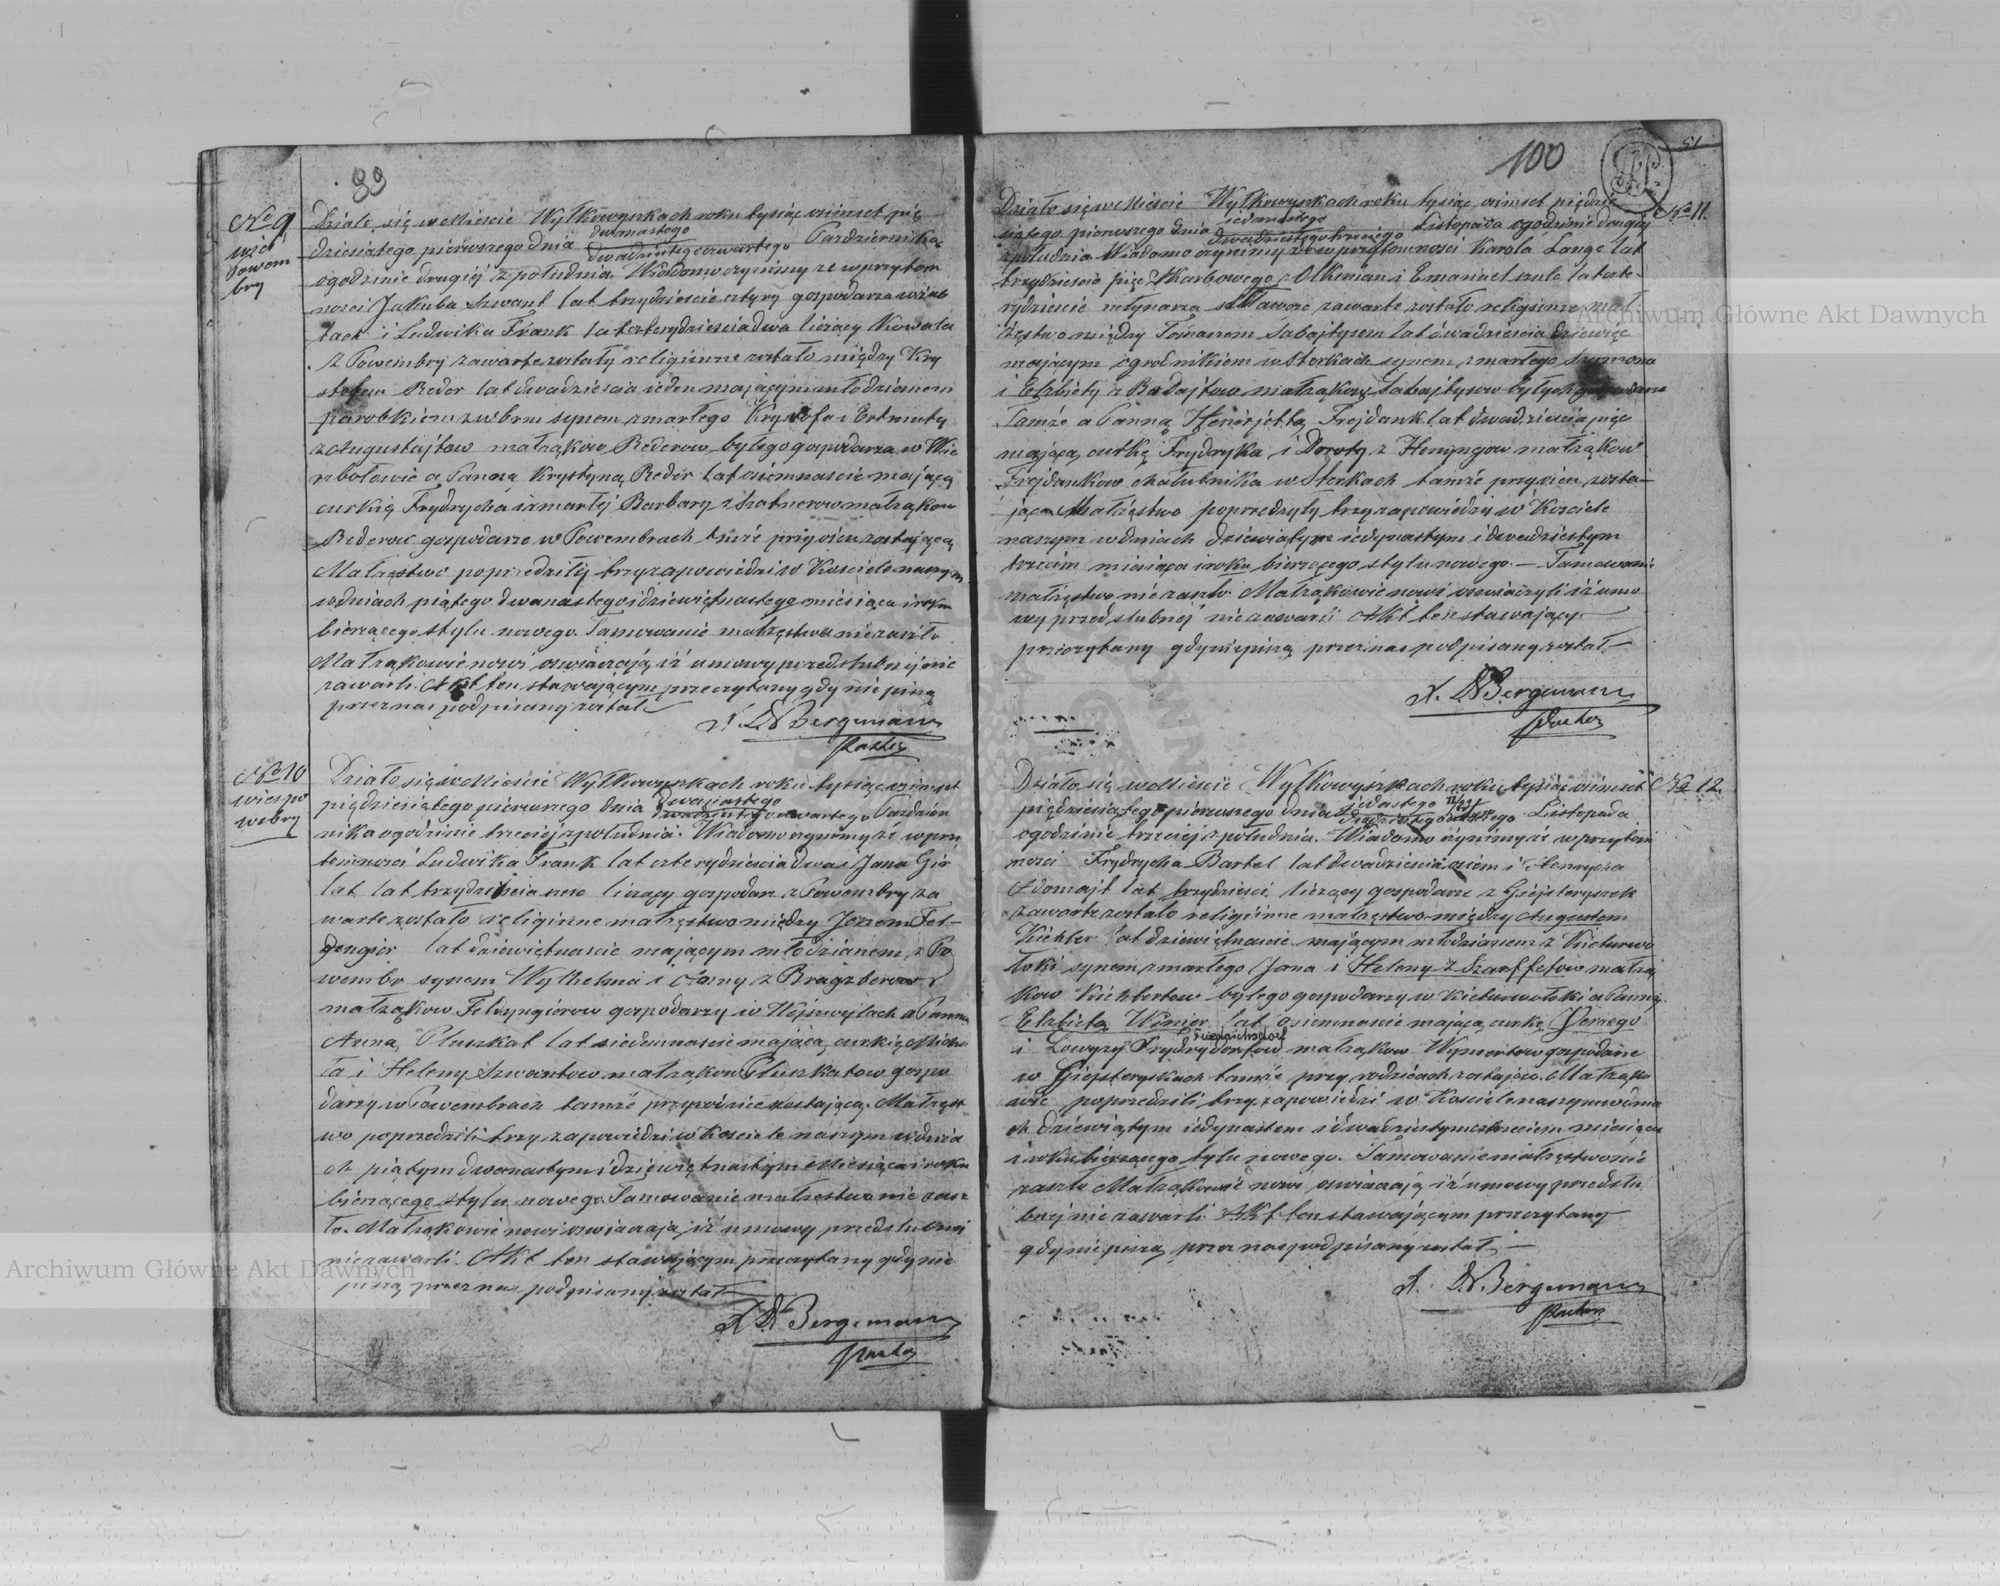 99
No 9
wieś
Powem
bry
Działo się w Mieście Wyłkowyszkach roku tysiąc ośmset pię
dziesiątego pierwszego dnia dwunastego / dwadziestego czwartego Pazdziernika
o godzinie drugiéj z południa. Wiadomo czyniemy że w przytom
ności Jakuba Szwant lat trzydzieście cztery gospodarza
i Ludwika Frank lat czterydzieścia dwa liczący Kowala
z Powembry zawarte zostały religijne zostało między Kry
stofem Reder lat dwadzieścia ieden mającym młodzianem
parobkiem synem zmarłego Krystofa i Ertmuty
z Augustajtow małżąkow Rederow byłego gospodarza w Wie
robołowie a Panną Krystyną Reder lat osiemnaście mającą
curkią Frydrycha i zmarłej Barbary z małżąkow
Rederow gospodarze w Powembrach tamże przy oicu zostającą
Małzęstwo poprzedziły trzy zapowiedzi w Kosciele naszym
w dniach piątego dwanastego i dziewiętnastego miesiąca i roku
bierzącego stylu nowego. Tamowanie małzęstwa nie zaszło
Małżąkowie nowi oswiaczają iż umowy przedslubnej nie
zawarli. Akt ten stawającym przeczytany gdy nie piszą
przez nas podpisany został
X. D Bergemann
Pastor
No 10
wieś Po
wembry
Działo się w Mieście Wyłkowyszkach roku tysiąc ośmset
pięдziesiątego pierwszego dnia dwanastego / dwadziestego czwartego Pazdzier
nika o godzinie trzeciej z południa. Wiadomo czyniemy że w przy
temności Ludwika Frank lat czterydzieścia dwa i Jana Gio
lat lat trzydzieścia liczący gospodarz z Powembry za
warte zostało religijne małzęstwo między Jerzem Fel-
dengiör lat dziewiętnaście mającym młodzianem z Po
wembr synem Wylhelma i Anny z
małżąkow gospodarzy w a Panną
Anną Pluszkat lat siedemnaście mającą curkią Micha
ła i Heleny Szwantow małżąkow Pluszkatow gospo
darzy w Powembrach tamże przy rodzice zostającą. Małzęst
wo poprzedzili trzy zapowiedzi w Kosciele naszym w dnia
ch piątym dwanastym i dziewiętnastym Miesiąca i roku
bierzącego stylu nowego. Tamowanie małzęstwa nie zasz
ło. Małżąkowie nowi oswiaczają iż umowy przedslubnej
nie zawarli. Akt ten stawającym przeczytany gdy nie
piszą przez nas podpisany został
X D Bergemann
Pastor
100
51
No 11.
Działo się w Mieście Wyłkowyszkach roku tysiąc ośmset pięдzie
siątego pierwszego dnia iedanastego / dwadziestego trzeciego Listopada o godzinie drugiéj
z południa Wiadomo czyniemy że w przytomności Karola Lange lat
trzydzieście pięć Skarbowego z Olkinian i Emanuel lat czte-
rydzieście młynarza zawarte zostało religijne mał
żęstwo między Tomaszem Sabajtysem lat dwadzieścia dziewięć
mającym ogrodnikiem w Sterkach synem zmarłego Szymona
i Elzbiety z Badajtow małżąkow Sabajtysow byłych gospodarze
tamże a Panną Henrjettą Frejdank lat dwadzieścia pięć
mającą curką Frydryka i Doroty z Heningow małżąkow
Frejdankow chałubnika w Sterkach tamże przy oicu zosta-
jąca. Małzęstwo poprzedzyły trzy zapowiedzy w Kosciele
naszym w dniach dziewiątym iedynastym i dwadziestym
trzecim miesiąca i roku bierzącego stylu nowego. — Tamowanie
małzęstwo nie zaszło. Małżąkowie nowi oswiaczyli iż umo
wy przedslubnej nie zawarli Akt ten stawającym
przeczytany gdy niepiszą przez nas podpisany został —
X. D Bergemann
Pastor
No 12
Działo się w Mieście Wyłkowyszkach roku tysiąc ośmset
pięдziesiątego pierwszego dnia iedastego 11/23 Listopada
o godzinie trzeciej z południa. Wiadomo czynimy iż w przytom
ności Frydrycha Bartel lat dwadzieścia osiem i Henrycza
Adomajt lat trzydzieści liczący gospodarze z Giejsteryszek
zawarte zostało religijne małzęstwo między Augustem
Kichler lat dziewiętnaście mającym młodzianem z Kieturwo
łoki synem zmarłego Jana i Heleny z Szarffetow małżą
kow byłego gospodarzy w Kieturwołoki a Panną
Elzbietą Wimer lat osiemnaście mającą curką Jerzego
i Lowyzy Frydrydorfow Friedrichsdorf małżąkow gospodarze
w Giejsteryszkach tamże przy rodzicach zostająca. Małżąko
wie poprzedzili trzy zapowiedzi w Kosciele naszym w dnia
ch dziewiątym iedynastem i dwadziestym trzeciem miesiąca
i roku bierzącego stylu nowego. Tamowanie małzęstwo nie
zaszło Małżąkowie nowi oswiaczają iż umowy przedslu
bnej nie zawarli Akt ten stawającym przeczytany
gdy niepiszą przez nas podpisany został, —
X. D Bergemann
Pastor
Archiwum Główne Akt Dawnych
Archiwum Główne Akt Dawnych